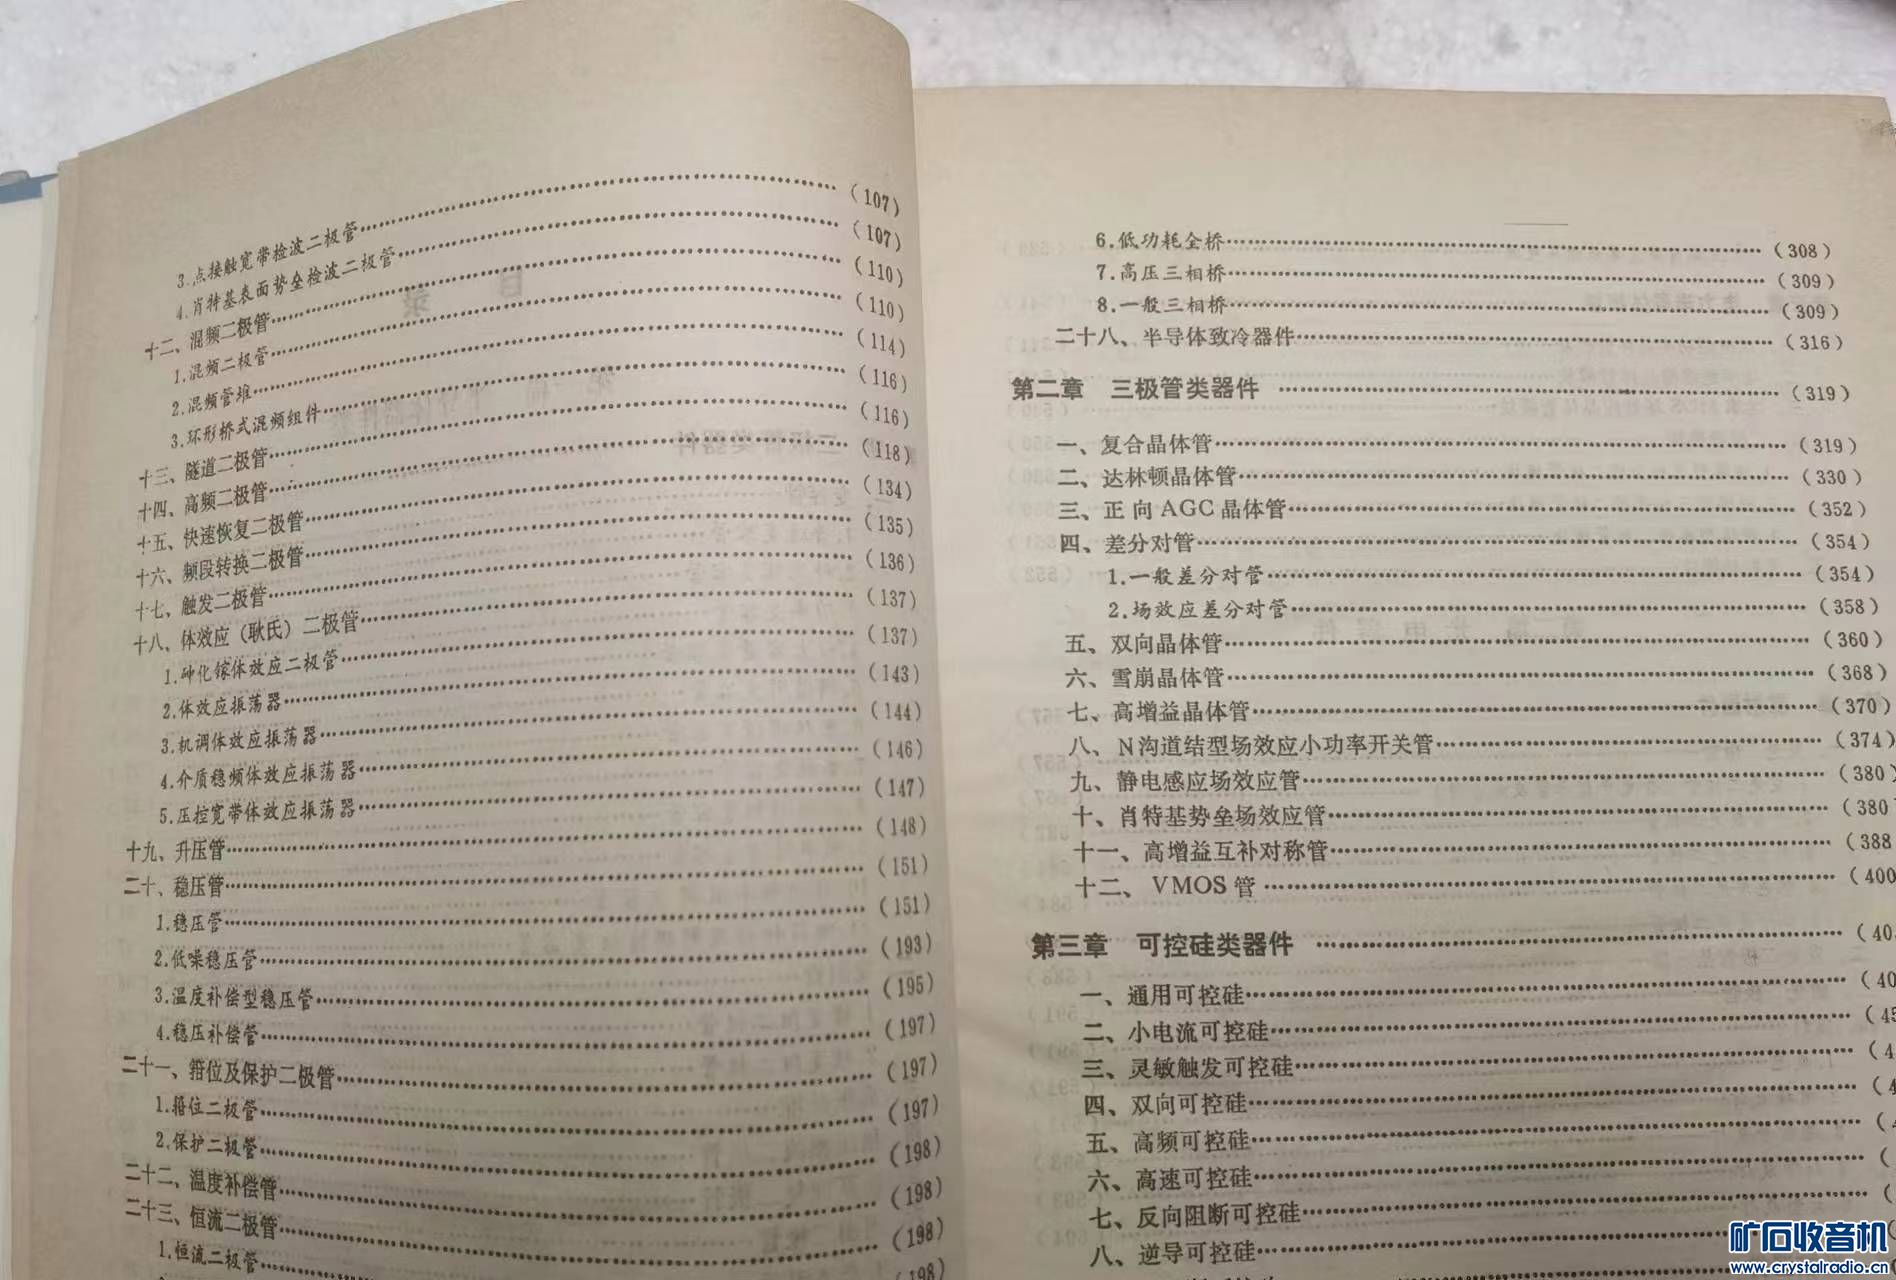 3.点接触宽带检波二极管……(107)
4.肖特基表面势垒检波二极管……(107)
十二、混频二极管……(110)
1.混频二极管……(110)
2.混频管堆……(114)
3.环形桥式混频组件……(116)
十三、隧道二极管……(116)
十四、高频二极管……(118)
十五、快速恢复二极管……(134)
十六、频段转换二极管……(135)
十七、触发二极管……(136)
十八、体效应（耿氏）二极管……(137)
1.砷化镓体效应二极管……(137)
2.体效应振荡器……(143)
3.机调体效应振荡器……(144)
4.介质稳频体效应振荡器……(146)
5.压控宽带体效应振荡器……(147)
十九、升压管……(148)
二十、稳压管……(151)
1.稳压管……(151)
2.低噪稳压管……(193)
3.温度补偿型稳压管……(195)
4.稳压补偿管……(197)
二十一、箝位及保护二极管……(197)
1.箝位二极管……(197)
2.保护二极管……(198)
二十二、温度补偿管……(198)
二十三、恒流二极管……(198)
1.恒流二极管……(198)
6.低功耗全桥……(308)
7.高压三相桥……(309)
8.一般三相桥……(309)
二十八、半导体致冷器件……(316)
第二章 三极管类器件……(319)
一、复合晶体管……(319)
二、达林顿晶体管……(330)
三、正向AGC晶体管……(352)
四、差分对管……(354)
1.一般差分对管……(354)
2.场效应差分对管……(358)
五、双向晶体管……(360)
六、雪崩晶体管……(368)
七、高增益晶体管……(370)
八、N沟道结型场效应小功率开关管……(374)
九、静电感应场效应管……(380)
十、肖特基势垒场效应管……(380)
十一、高增益互补对称管……(388
十二、VMOS管……(400
第三章 可控硅类器件……(40
一、通用可控硅……(40
二、小电流可控硅……(45
三、灵敏触发可控硅……(4
四、双向可控硅……(4
五、高频可控硅……(
六、高速可控硅……(
七、反向阻断可控硅……(
八、逆导可控硅……
矿石收音机
www.crystalradio.cn